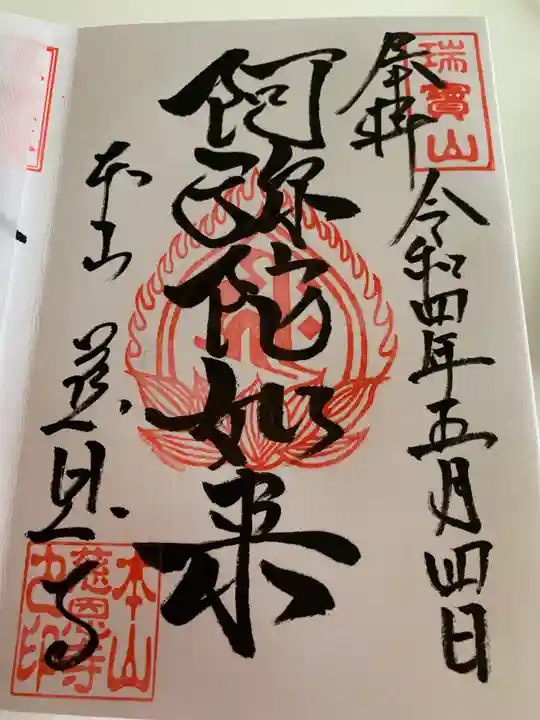 瑞寶山
奉拝
令和四年五月四日
阿弥陀如来
本山
慈恩寺
本山
慈恩寺
之印